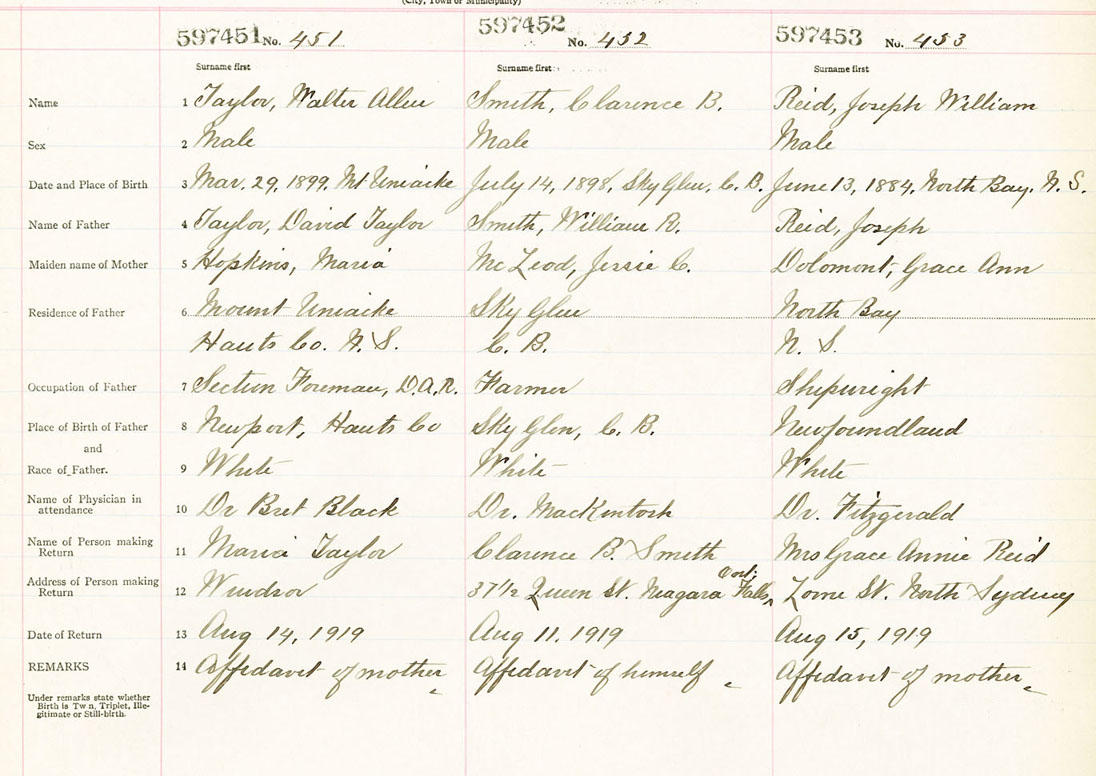 (City, Town or Municipality)
597451 No. 451 597452 No. 452 597453 No. 453
Surname first Surname first Surname first
Name 1 Taylor, Walter Allen Smith, Clarence B. Reid, Joseph William
Sex 2 Male Male Male
Date and Place of Birth 3 Mar. 29, 1899. Mt Uniacke July 14, 1898, Sky Glen, C. B. June 13, 1884, North Bay, N. S.
Name of Father 4 Taylor, David Taylor Smith, William R. Reid, Joseph
Maiden name of Mother 5 Hopkins, Maria McLeod, Jessie C. Dolomont, Grace Ann
Residence of Father 6 Mount Uniacke Sky Glen North Bay
Hants Co. N. S. C. B. N. S.
Occupation of Father 7 Section Foreman, D.A.R. Farmer Shipwright
Place of Birth of Father 8 Newport, Hants Co Sky Glen, C. B. Newfoundland
and
Race of Father. 9 White White White
Name of Physician in
attendance 10 Dr Bret Black Dr. MacKintosh Dr. Fitzgerald
Name of Person making
Return 11 Maria Taylor Clarence B. Smith Mrs Grace Annie Reid
Address of Person making
Return 12 Windsor 37 1/2 Queen St. Niagara Falls, Ont; Lorne St. North Sydney
Date of Return 13 Aug 14, 1919 Aug 11. 1919 Aug 15, 1919
REMARKS 14 Affidavit of mother Affidavit of himself Affidavit of mother
Under remarks state whether
Birth is Tw n, Triplet, Ille-
gitimate or Still-birth.